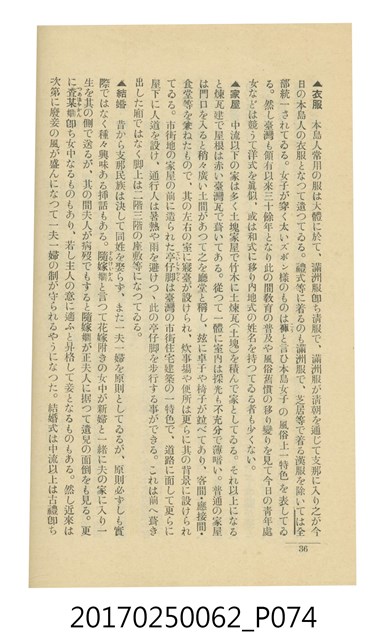 ▲衣服　本島人常用の服は大體に於て、滿洲服卽ち清服で、滿洲服が清朝を通じて支那に入り之が今
日の本島人の衣服となつて遺つてゐる。禮式等に着るのも滿洲服で、芝居等で着る漢服を除いては全
部統一されてゐる。女子が穿く太いズボン樣のものは褲と言ひ本島女子の風俗上一特色を表してゐ
る。然し臺灣も領有以來三十餘年となり此の間敎育の普及や風俗舊慣の移り變りを見て今日の靑年處
女などは競うて洋式を眞似、或は和式に移り內地式の姓名を持つてゐる者も少くない。
▲家屋　中流以下の家は多く土塊家屋で竹木に土煉瓦（土塊）を積んで家としてゐる。それ以上になる
と煉瓦建で屋根は赤い臺灣瓦で葺いてある。從つて一體に室內は採光も不充分で薄暗い。普通の家屋
は門口を入ると稍々廣い土間があつて之を廳堂と稱し、玆に卓子や椅子が竝べてあり、客間・應接間・
食堂等を兼ねたもので、其の左右の室に寢臺が設けられ、炊事場や便所は更らに其の背景に設けられ
てゐる。市街地の家屋の前に造られた亭仔脚は臺灣の市街住宅建築の一特色で、道路に面して更らに
屋下に人道を設け、通行人は暑熱や雨を避けつゝ此の亭仔脚を步行する事ができる。これは前へ葺き
出した廂ではなく脚上は二階三階の座敷等になつてゐる。
▲結婚　昔から支那民族は決して同姓を娶らず、また一夫一婦を原則としてゐるが、原則必ずしも實
際ではなく種々興味ある揷話もある。隨嫁𡢃と言つて花嫁附きの女中が新婦と一緖に夫の家に入り一
生を其の側で送るが、其の間夫人が病歿でもすると隨嫁𡢃が正夫人に据つて遺兒の面倒をも見る。更
に査某𡢃卽ち女中なるものもあり、若し主人の意に適ふと昇格して妾となるものもある。然し近來は
次第に廢妾の風が盛んになつて一夫一婦の制が守られるやうになつた。結婚式は中流以上は古禮卽ち
36
20170250062_P074